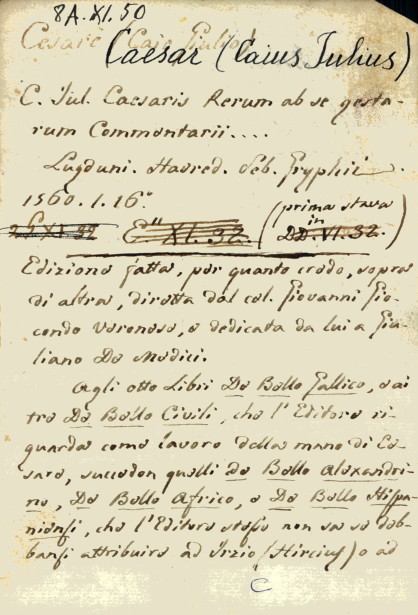 8A.XI.50
Cesare (Caio Giulio)
Caesar (Caius Julius)
C. Jul. Caesaris Rerum ab se gesta-
rum Commentarii....
Lugduni. Haered. Seb. Gryphii.
1560. 1. 16°.
(prima stava
in
XI. 32. DD. VI. 32.)
Edizione fatta, per quanto credo, sopra
di altra, diretta dal cel. Giovanni Gio-
condo Veronese, e dedicata da lui a Giu-
liano De Medici.
Agli otto Libri De Bello Gallico, e ai
tre De Bello Civili, che l'Editore ri-
guarda come lavoro della mano di Ce-
sare, succedon quelli de Bello Alexandri-
no, De Bello Africo, e De Bello Hispa-
niensi, che l'Editore stesso non sa se deb-
bansi attribuire ad Irzio (Hircius) o ad